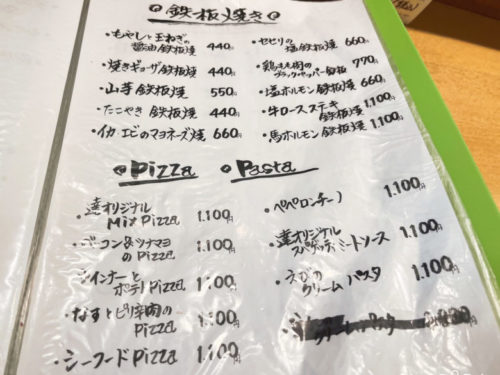 鉄板焼き
・もやしと玉ねぎの
醤油鉄板焼 440円
・焼きギョーザ鉄板焼 440円
・山芋鉄板焼 550円
・たこやき鉄板焼 440円
・イカ・エビのマヨネーズ焼 660円
・セセリの
塩鉄板焼 660円
・鶏もも肉の
ブラックペッパー鉄板 770円
・塩ホルモン鉄板焼 660円
・牛ロースステーキ
鉄板焼 1.100円
・馬ホルモン鉄板焼 1.100円
Pizza
・達オリジナル
MixPizza 1.100円
・ベーコン&ツナマヨ
のPizza 1.100円
・ウインナーと
ポテトPizza 1.100円
・なすとピリ辛肉の
Pizza 1.100円
・シーフードPizza 1.100円
Pasta
・ペペロンチーノ 1.100円
・達オリジナル
スパゲッティミートソース 1.100円
・えびの
クリームパスタ 1.100円